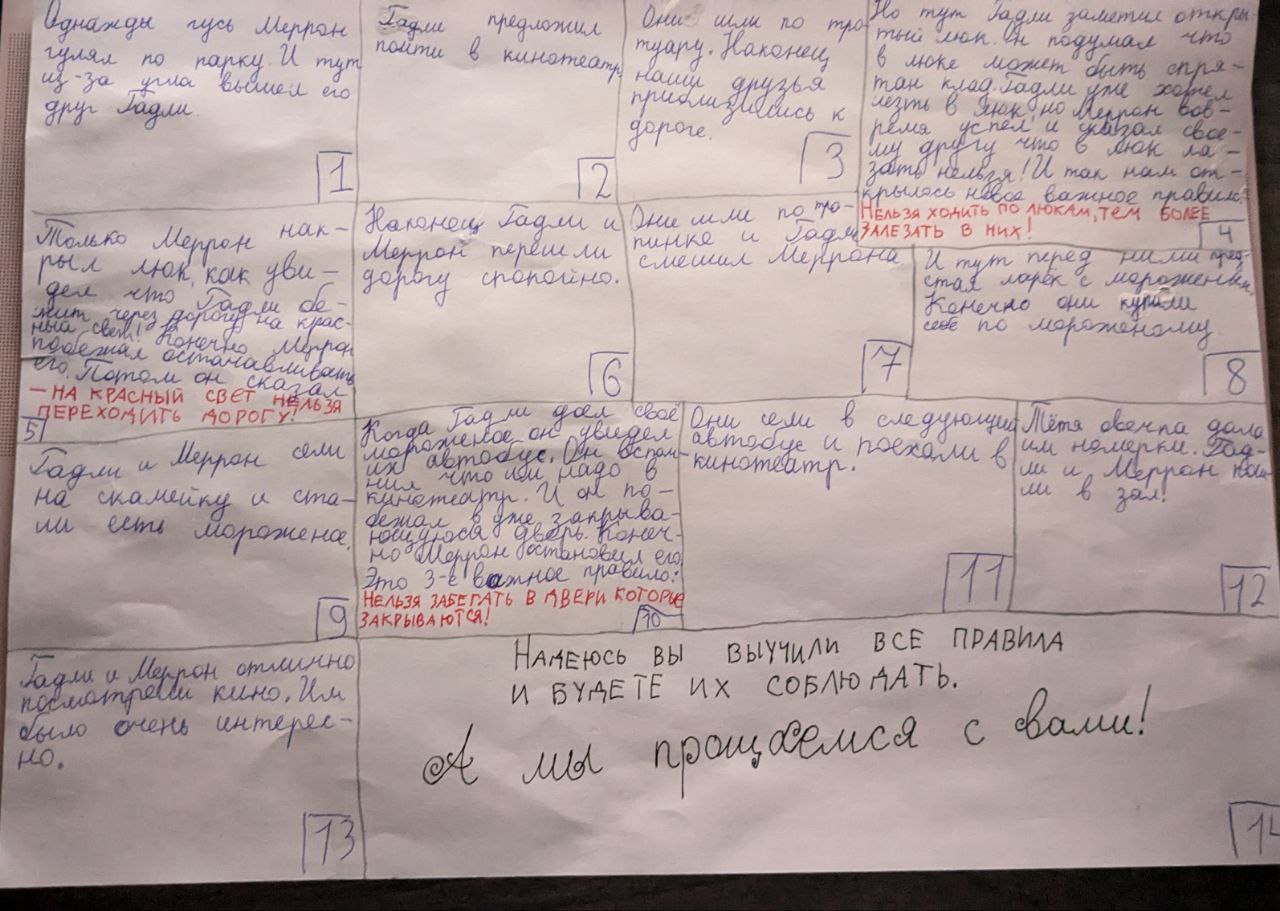 Однажды гусь Меррон
гулял по парку. И тут
из-за угла вышел его
друг Гадли.
1
Гадли предложил
пойти в кинотеатр.
2
Они шли по тро
туару. Наконец
наши друзья
приблизились к
дороге.
3
Но тут Гадли заметил откры-
тый люк. Он подумал что
в люке может быть спря-
тан клад. Гадли уже хотел
лезть в люк, но Меррон вов-
ремя успел и указал свое-
му другу что в люк ла-
зать нельзя! И так нам от-
крылось новое важное правило:
Нельзя ходить по люкам, тем более
залезать в них!
4
Только Меррон нак-
рыл люк, как уви-
дел что Гадли бе-
жит через дорогу на крас-
ный свет! Конечно Меррон
побежал останавливать
его. Потом он сказал
— НА КРАСНЫЙ СВЕТ НЕЛЬЗЯ
ПЕРЕХОДИТЬ ДОРОГУ!
5
Наконец Гадли и
Меррон перешли
дорогу спокойно.
6
Они шли по тро-
пинке и Гадли
смешил Меррона
7
И тут перед ними пред-
стал ларёк с мороженым.
Конечно они купили
себе по мороженому.
8
Гадли и Меррон сели
на скамейку и ста-
ли есть морожена.
9
Когда Гадли доел своё
мороженое он увидел
их автобус. Он вспом-
нил что им надо в
кинотеатр. И он по-
бежал в уже закрыва-
ющуюся дверь. Конеч-
но Меррон остановил его.
Это 3-е важное правило:
НЕЛЬЗЯ ЗАБЕГАТЬ В ДВЕРИ КОТОРЫЕ
ЗАКРЫВАЮТСЯ!
10
Они сели в следующий
автобус и поехали в
кинотеатр.
11
Тётя овечка дала
им номерки. Гад-
ли и Меррон пош-
ли в зал!
12
Гадли и Меррон отлично
посмотрели кино. Им
было очень интерес-
но.
13
Надеюсь вы выучили все правила
и будете их соблюдать.
А мы прощаемся с вами!
14